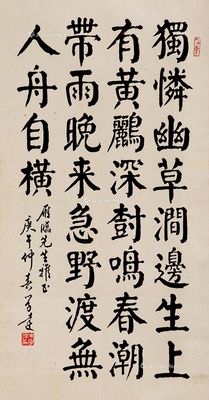 獨憐幽草澗邊生上
有黃鸝深樹鳴春潮
帶雨晚来急野渡無
人舟自橫
先生雅正
庚午仲春